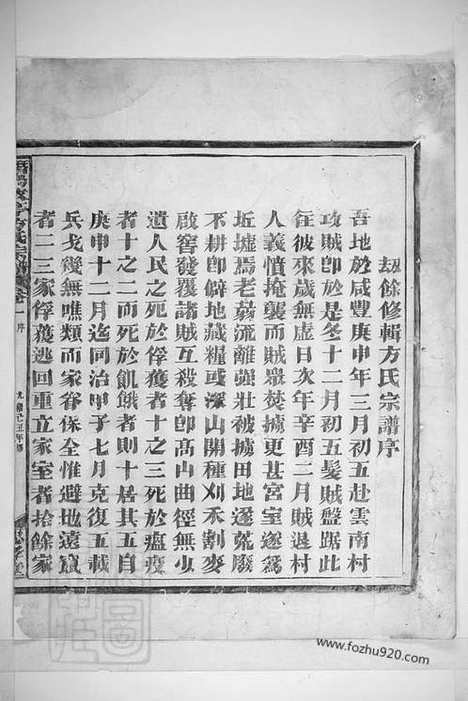 劫餘修輯方氏宗譜序
吾地於咸豐庚申年三月初五赴雲南村
攻賊卽於是冬十二月初五髮賊盤踞此
徃彼來歲無虛日次年辛酉二月賊退村
人義憤掩襲而賊衆焚擄更甚宮室遂爲
坵墟焉老弱流離強壯被擄田地遂荒廢
不耕卽僻地藏糧或深山開種刈禾割麥
啟窖發覆諸賊互殺奪卽高山曲徑無少
遺人民之死於俘獲者十之三死於瘟疫
者十之二而死於飢餓者則十居其五自
庚申十二月迄同治甲子七月克復五載
兵戈幾無噍類而家眷保全惟避地遠竄
者二三家俘獲逃回重立家室者拾餘家
方氏宗譜 卷一 序
www.fozhu920.com